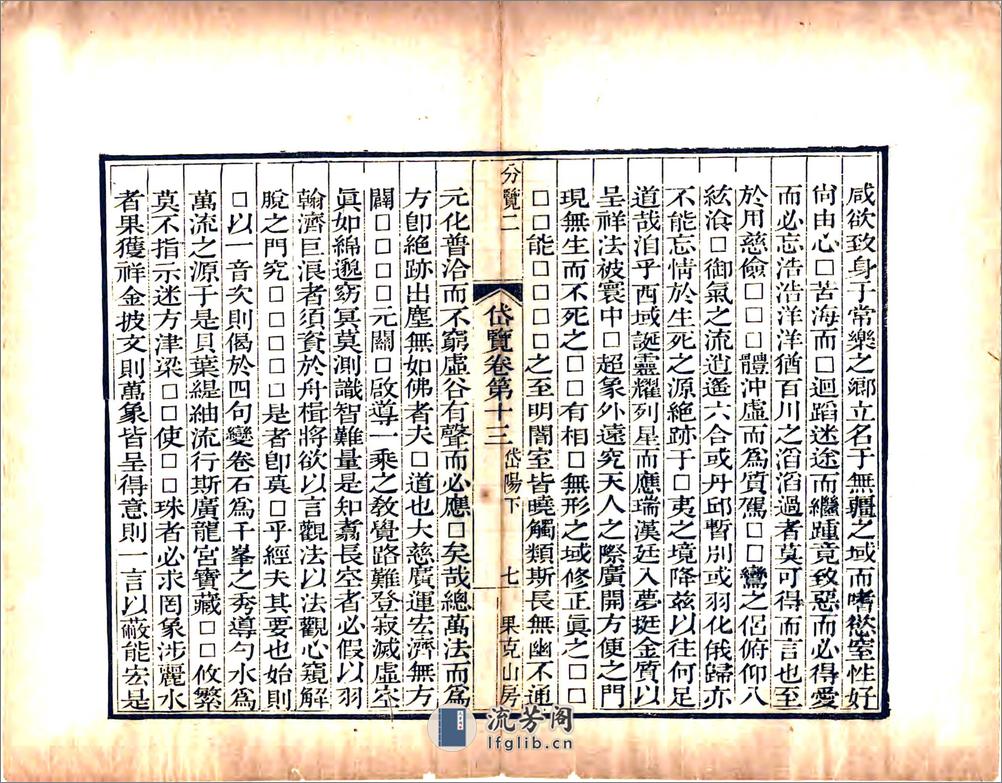 咸欲致身于常樂之鄉立名于無疆之域而嗜慾窒性好
尙由心□苦海而□迴蹈迷途而繼踵竟致惡而必得愛
而必忘浩浩洋洋猶百川之滔滔過者莫可得而言也至
於用慈儉□□□□體沖虛而爲質駕□□鸞之侶俯仰八
紘飡□御氣之流逍遙六合或丹邱暫別或羽化俄歸亦
不能忘情於生死之源絕跡于□夷之境降兹以往何足
道哉洎乎西域誕靈耀列星而應瑞漢廷入夢挺金質以
呈祥法被寰中□超象外遠究天人之際廣開方便之門
現無生而不死之□□有相□無形之域修正眞之□□
□□能□□□□□之至明闇室皆曉觸類斯長無幽不通
分覽二
岱覽卷第十三
岱陽下
七
果克山房
元化普洽而不窮虛谷有聲而必應□矣哉總萬法而爲
方卽絕跡出塵無如佛者夫□道也大慈廣運宏濟無方
闢□□□□元關□啟導一乘之教覺路難登寂滅虛空
眞如綿邈窈冥莫測識智難量是知翥長空者必假以羽
翰濟巨浪者須資於舟楫將欲以言觀法以法觀心窺解
脫之門究□□□□□是者卽莫□乎經夫其要也始則
□以一音次則偈於四句變卷石爲千峯之秀導勺水爲
萬流之源于是貝葉緹紬流行斯廣龍宮寶藏□□攸繁
莫不指示迷方津梁□□□使□□珠者必求罔象涉麗水
者果獲祥金披文則萬象皆呈得意則一言以蔽能宏是
流芳阁
lfglib.cn